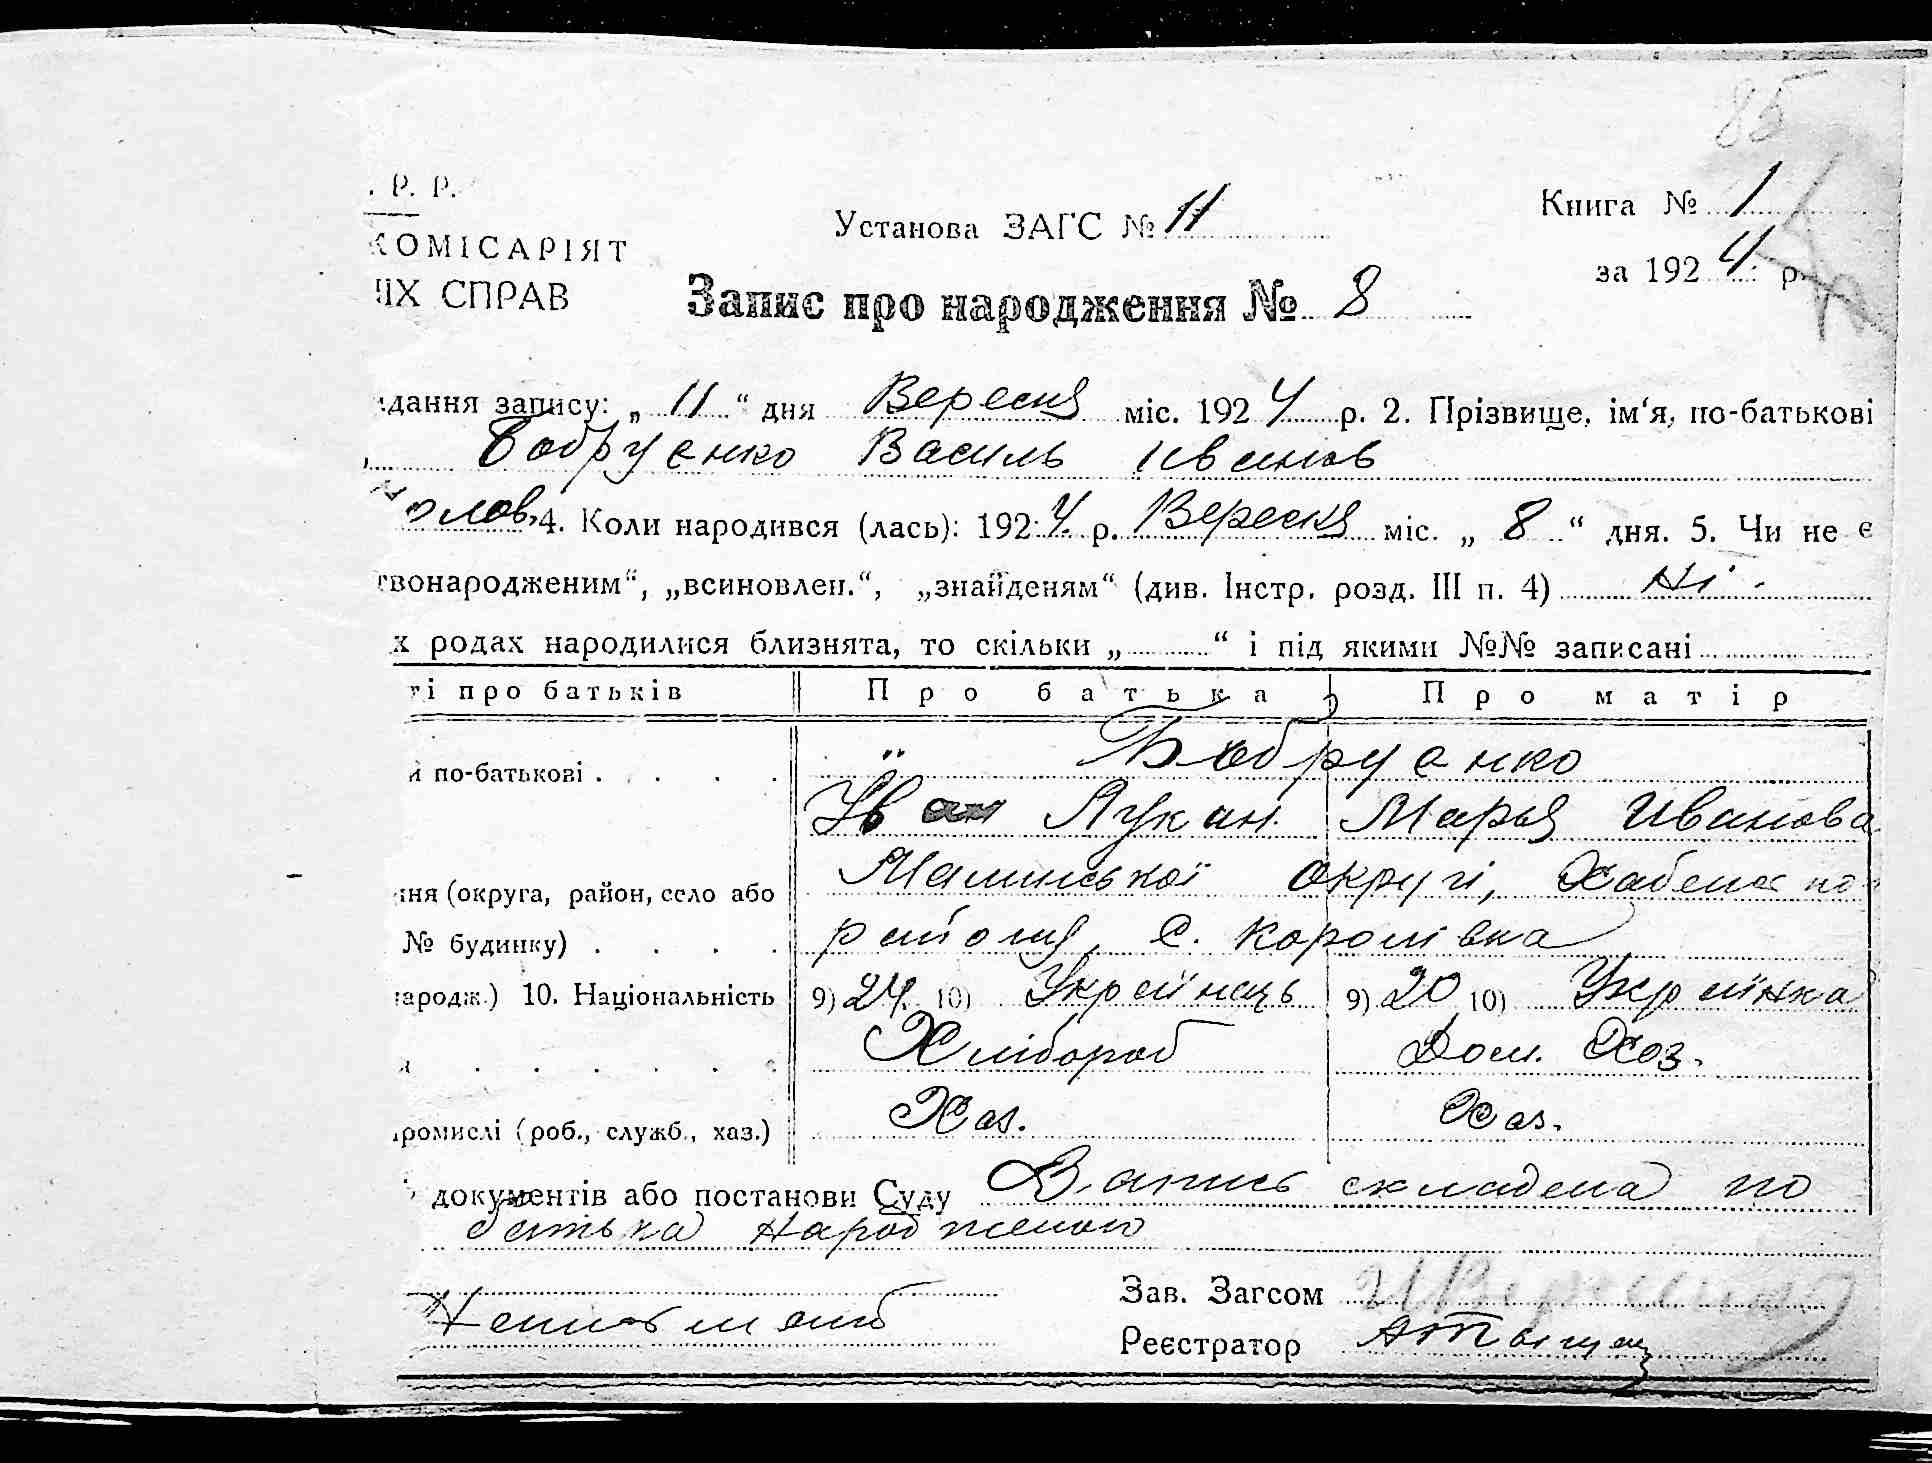 85
. Р. Р.
Книга № 1
Установа ЗАГС № 11
КОМІСАРІЯТ
за 1924 р.
ІХ СПРАВ
Запис про народження № 8
дання запису: „ 11 “ дня Вересня міс. 1924 р. 2. Прізвище, ім‘я, по-батькові
Бобруєнко Василь Иванов
олов. 4. Коли народився (лась): 1924 р. Вересня міс. „ 8 “ дня. 5. Чи не є
твонародженим“, „всиновлен.“, „знайденям“ (див. Інстр. розд. III п. 4) Ні.
х родах народилися близнята, то скільки „ “ і під якими №№ записані
ті про батьків Про батька Про матір
и по-батькові . . . . Бобруенко
Ів ан Лукан. Марья Иванова
ння (округа, район, село або Малинської округі, Хабенско
№ будинку) . . . . району, с. Королівка
народж.) 10. Національність 9) 24 10) Українець 9) 20 10) Українка
Хлібороб Дом. Хоз.
промислі (роб., служб., хаз.) Хаз. Хаз.
документів або постанови Суду Запись складена по
батька народженого
Зав. Загсом
Неписьмений
Реєстратор